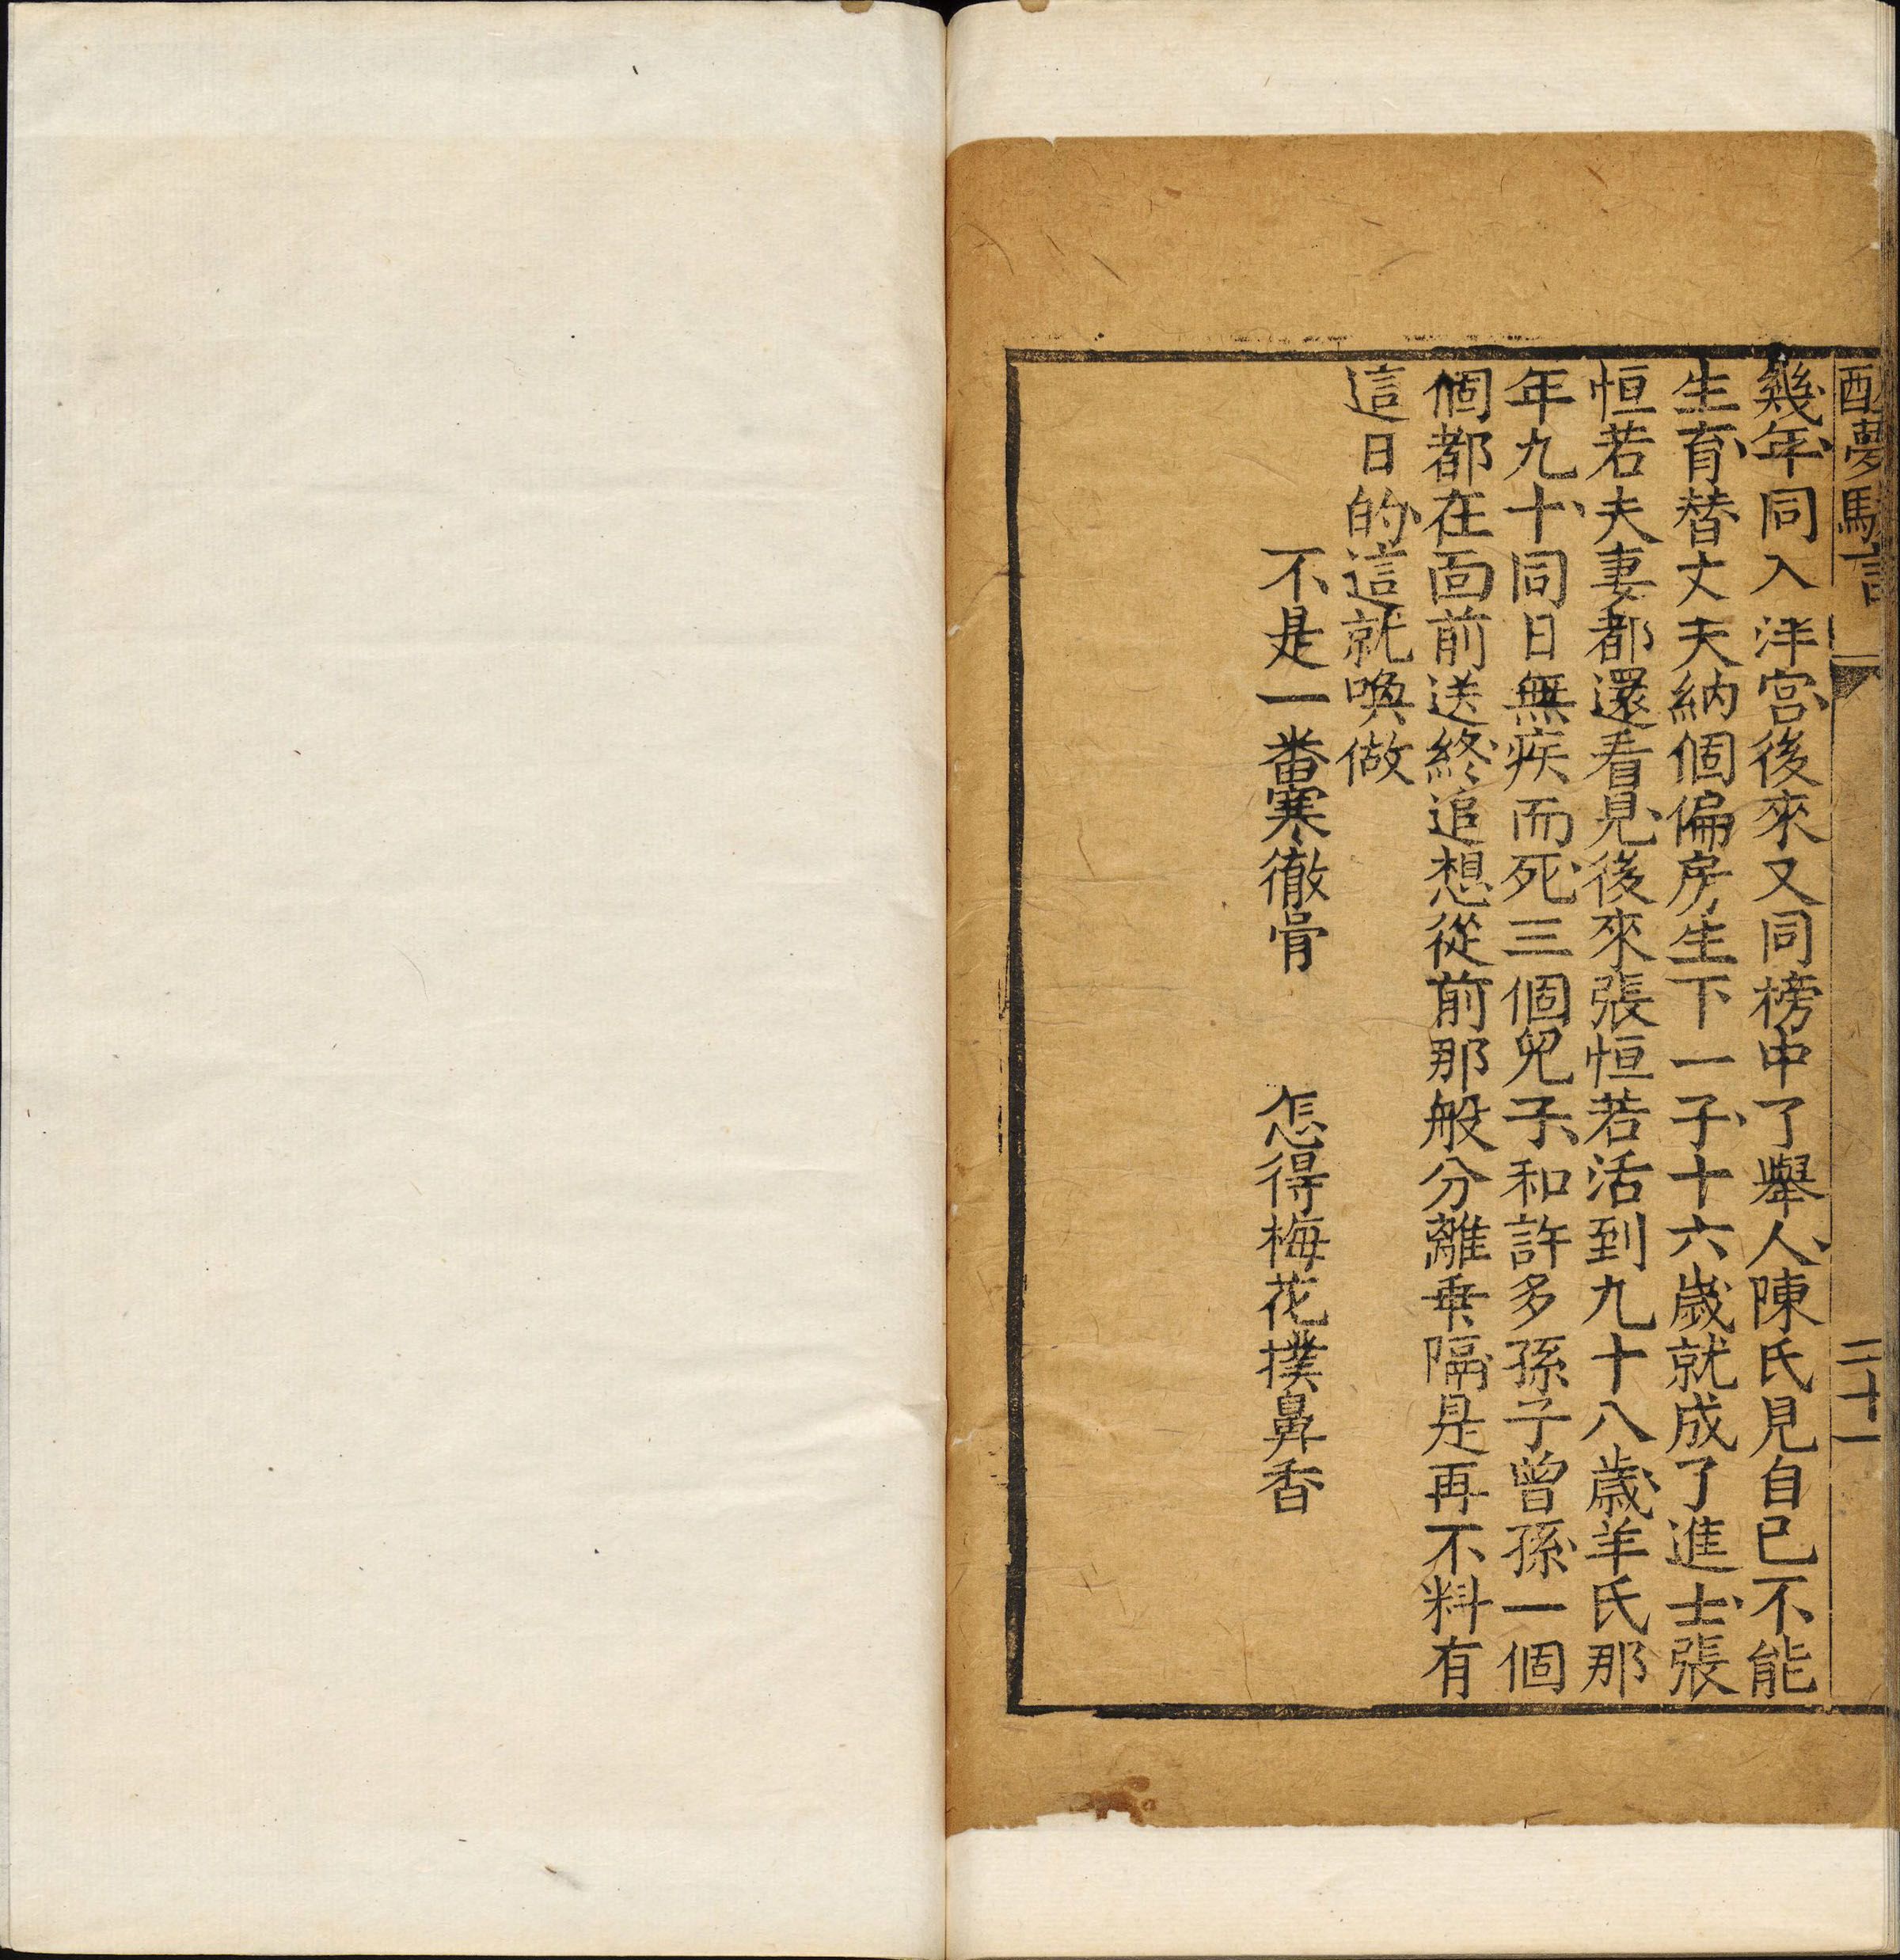 醒夢駢言
二十一
幾年、同入泮宮、後來又同榜中了舉人、陳氏見自己不能
生育、替丈夫納個偏房、生下一子、十六歲就成了進士、張
恒若夫妻都還看見、後來張恒若活到九十八歲、羊氏那
年九十、同日無疾而死、三個兒子、和許多孫子曾孫、一個
個都在面前送終、追想從前那般分離乖隔是再不料有
這日的、這就喚做
不是一番寒徹骨　怎得梅花撲鼻香